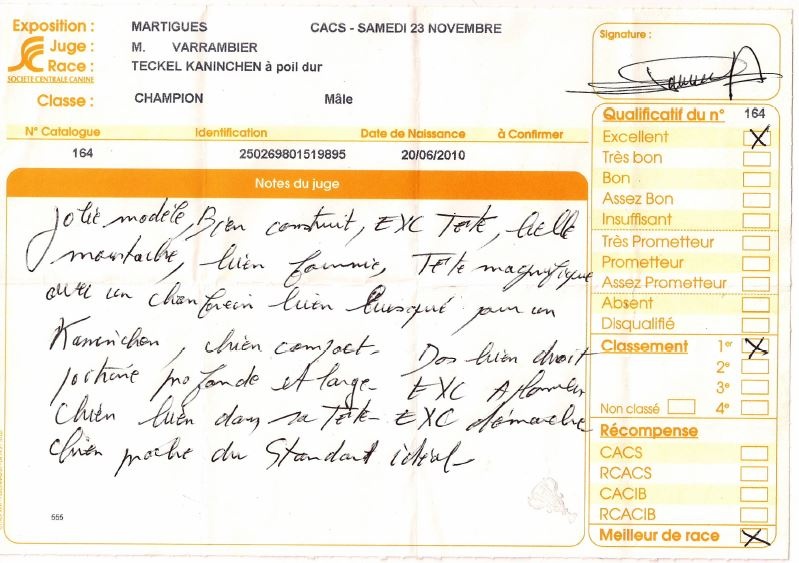 Exposition : MARTIGUES CACS - SAMEDI 23 NOVEMBRE
Juge : M. VARRAMBIER
Race : TECKEL KANINCHEN à poil dur
SOCIÉTÉ CENTRALE CANINE
Classe : CHAMPION Mâle
N° Catalogue Identification Date de Naissance à Confirmer
164 250269801519895 20/06/2010
Notes du juge
Jolie modèle, Bien construit, EXC Tête, belle
moustache, bien fournie, Tête magnifique
avec un chanfrein bien busqué pour un
Kaninchen, chien compact. Dos bien droit
poitrine profonde et large EXC Aplombs
Chien bien dans sa Tête EXC démarche
Chien proche du Standart idéal
555
Signature :
Qualificatif du n° 164
Excellent X
Très bon
Bon
Assez Bon
Insuffisant
Très Prometteur
Prometteur
Assez Prometteur
Absent
Disqualifié
Classement 1er X
2e
3e
Non classé 4e
Récompense
CACS
RCACS
CACIB
RCACIB
Meilleur de race X